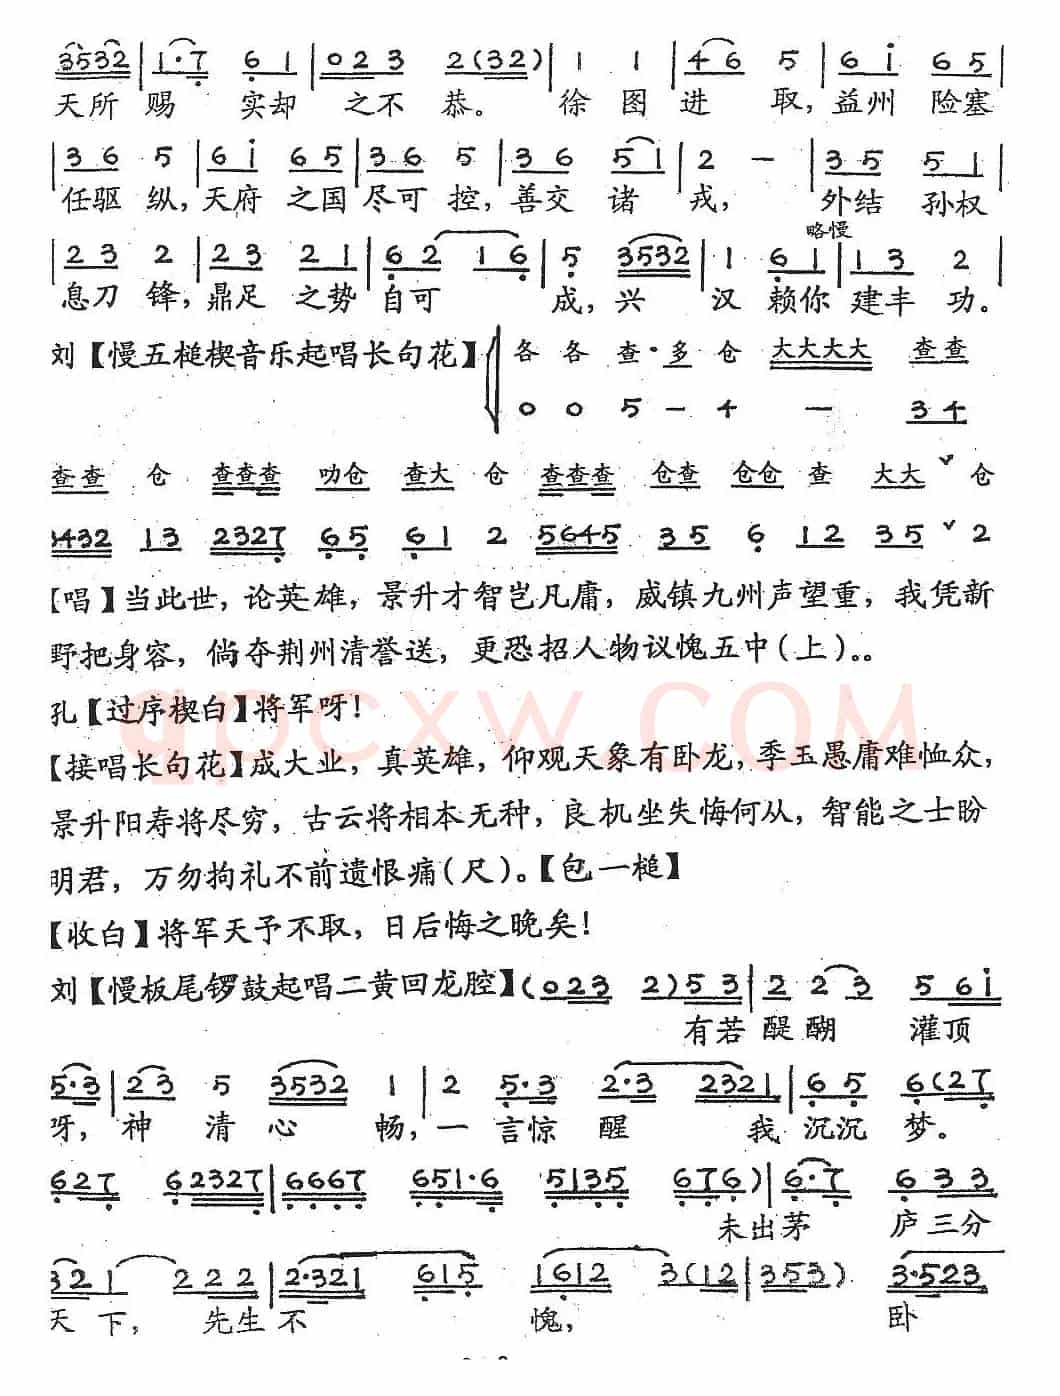 3532 | 1·7 6 1 | 0 2 3 2(32) | 1 1 | 4 6 5 | 6 i 6 5 |
天所 赐 实却 之不 恭。 徐 图 进 取，益州 险塞
| 3 6 5 | 6 i 6 5 | 3 6 5 | 3 6 5 1 | 2 — | 3 5 5 1 |
任驱 纵，天府 之国 尽可 控，善交 诸 戎， 外结 孙权
略慢
| 2 3 2 | 2 3 2 1 | 6 2 1 6 | 5 3532 | 1 6 1 | 1 3 2 |
息刀 锋，鼎足 之势 自可 成，兴 汉 赖你 建丰 功。
刘【慢五槌楔音乐起唱长句花】 各 各 查·多 仓 大大大大 查查
0 0 5 — 4 — 3 4
查查 仓 查查查 叻仓 查大 仓 查查查 仓查 仓仓 查 大大 ˅ 仓
3432 13 2327 65 61 2 5645 35 6 12 35 ˅ 2
【唱】当此世，论英雄，景升才智岂凡庸，威镇九州声望重，我凭新
野把身容，倘夺荆州清誉送，更恐招人物议愧五中(上)。。
孔【过序楔白】将军呀！
【接唱长句花】成大业，真英雄，仰观天象有卧龙，季玉愚庸难恤众，
景升阳寿将尽穷，古云将相本无种，良机坐失悔何从，智能之士盼
明君，万勿拘礼不前遗恨痛(尺)。【包一槌】
【收白】将军天予不取，日后悔之晚矣！
刘【慢板尾锣鼓起唱二黄回龙腔】(023 2)53 | 2 2 3 5 6 i
有若 醍醐 灌顶
5·3 | 2 3 5 3532 1 | 2 5·3 2·3 2321 | 6 5 6(27
呀， 神 清 心 畅，一 言惊 醒 我 沉沉 梦。
627 62327 | 6667 651·6 5135 676) | 6·7 6 3 3
未出茅 庐三分
3 2 1 2 2 2 | 2·321 615 1612 3(12 | 353) 3·523
天 下， 先生 不 愧， 卧
qpcxw.COM